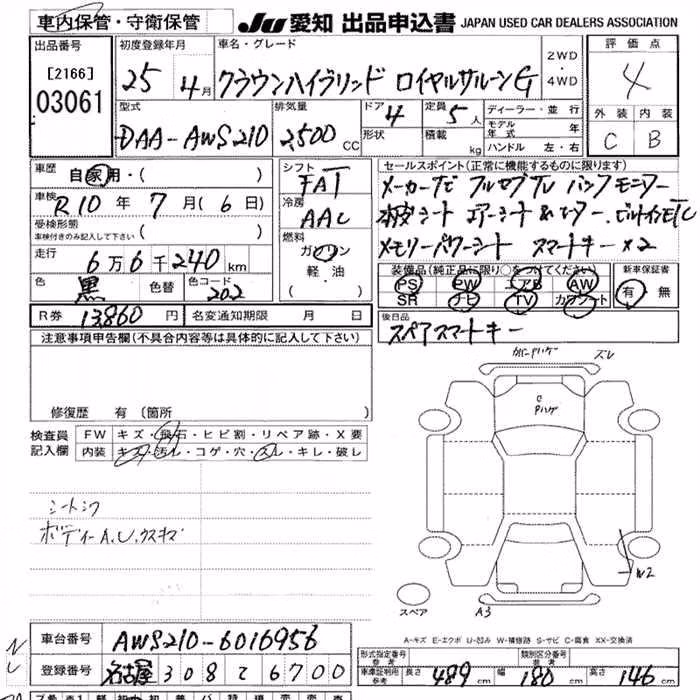 車内保管・守衛保管 JU 愛知 出品申込書 JAPAN USED CAR DEALERS ASSOCIATION
出品番号 初度登録年月 車名・グレード 2WD 評価点
[2166] 25 4月 クラウンハイブリッド ロイヤルサルーンG 4WD 4
03061 型式 排気量 ドア 4 定員 5人 ディーラー・並行 外装 内装
DAA-AWS210 2,500cc 形状 積載 kg モデル年式 年 C B
ハンドル 左・右
車歴 自家用・( ) シフト FAT セールスポイント(正常に機能するものに限ります)
車検 R10年 7月(6日) 冷房 AAC メーカーナビ フルセグTV バックモニター
受検形態 車検付きのみ記入して下さい( ) 燃料 本革シート エアーシート&ヒーター、ビルトインETC
走行 6万6千240km ガソリン メモリーパワーシート スマートキー×2
色 黒 色替 色コード 202 軽油 ( ) 装備品(純正品に限り○をつけてください) 新車保証書
PS PW エアB AW 有 無
SR ナビ TV カワシート
R券 13,860円 名変通知期限 月 日 後日品
スペアスマートキー
注意事項申告欄(不具合内容等は具体的に記入して下さい)
ズレ
Pハゲ
修復歴 有(箇所
検査員 FW キズ・飛石・ヒビ割・リペア跡・X要
記入欄 内装 キズ・汚レ・コゲ・穴・スレ・キレ・破レ
シートシワ
ボディーA.U.ウスキズ
W2
スペア A3
A-キズ E-エクボ U-凹み W-補修跡 S-サビ C-腐食 XX-交換済
車台番号 AWS210-6016956
型式指定番号 参考 類別区分番号 参考
登録番号 名古屋 308 て 6700 車庫証明用 参考 長さ 489cm 幅 180cm 高さ 146cm